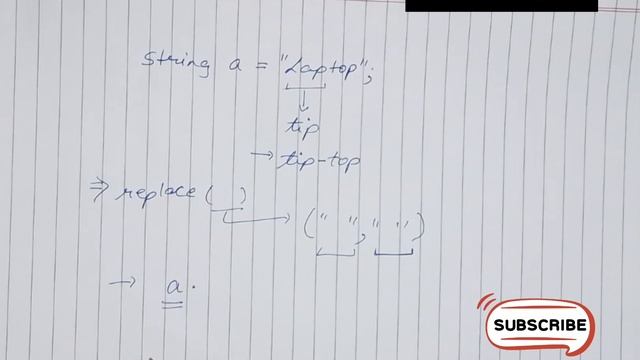 String a = "Laptop";
↓
tip
→ tip-top
⇒ replace ( )
→ (" ", " ")
→ a.
SUBSCRIBE